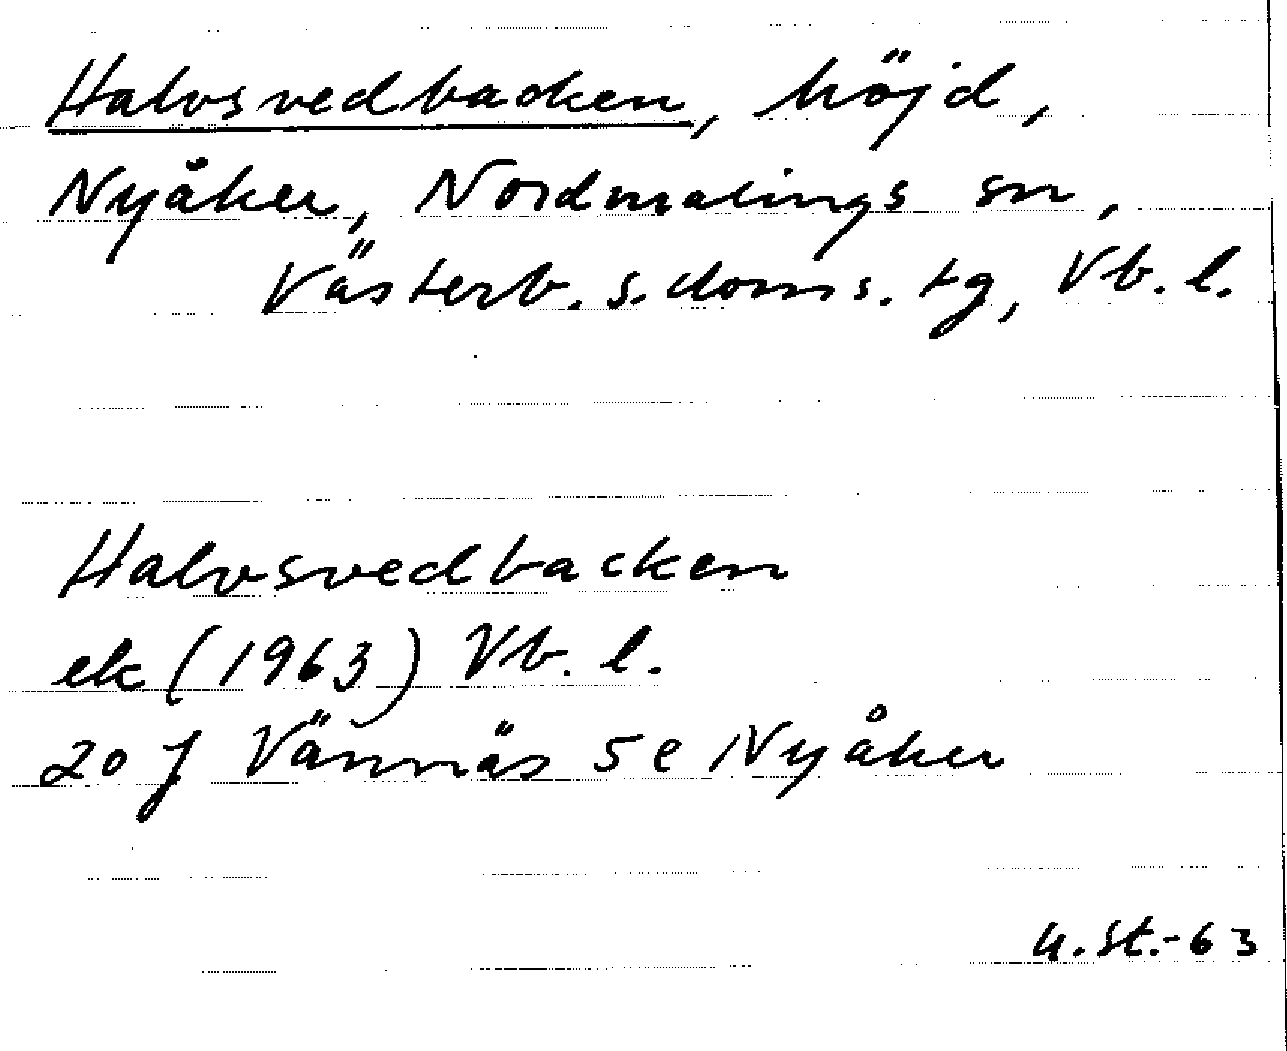 Halvsvedbacken, höjd,
Nyåker, Nordmalings sn,
Västerb. s. doms. tg, Vb. l.
Halvsvedbacken
ek (1963) Vb. l.
20 J Vännäs 5e Nyåker
u. St.-63